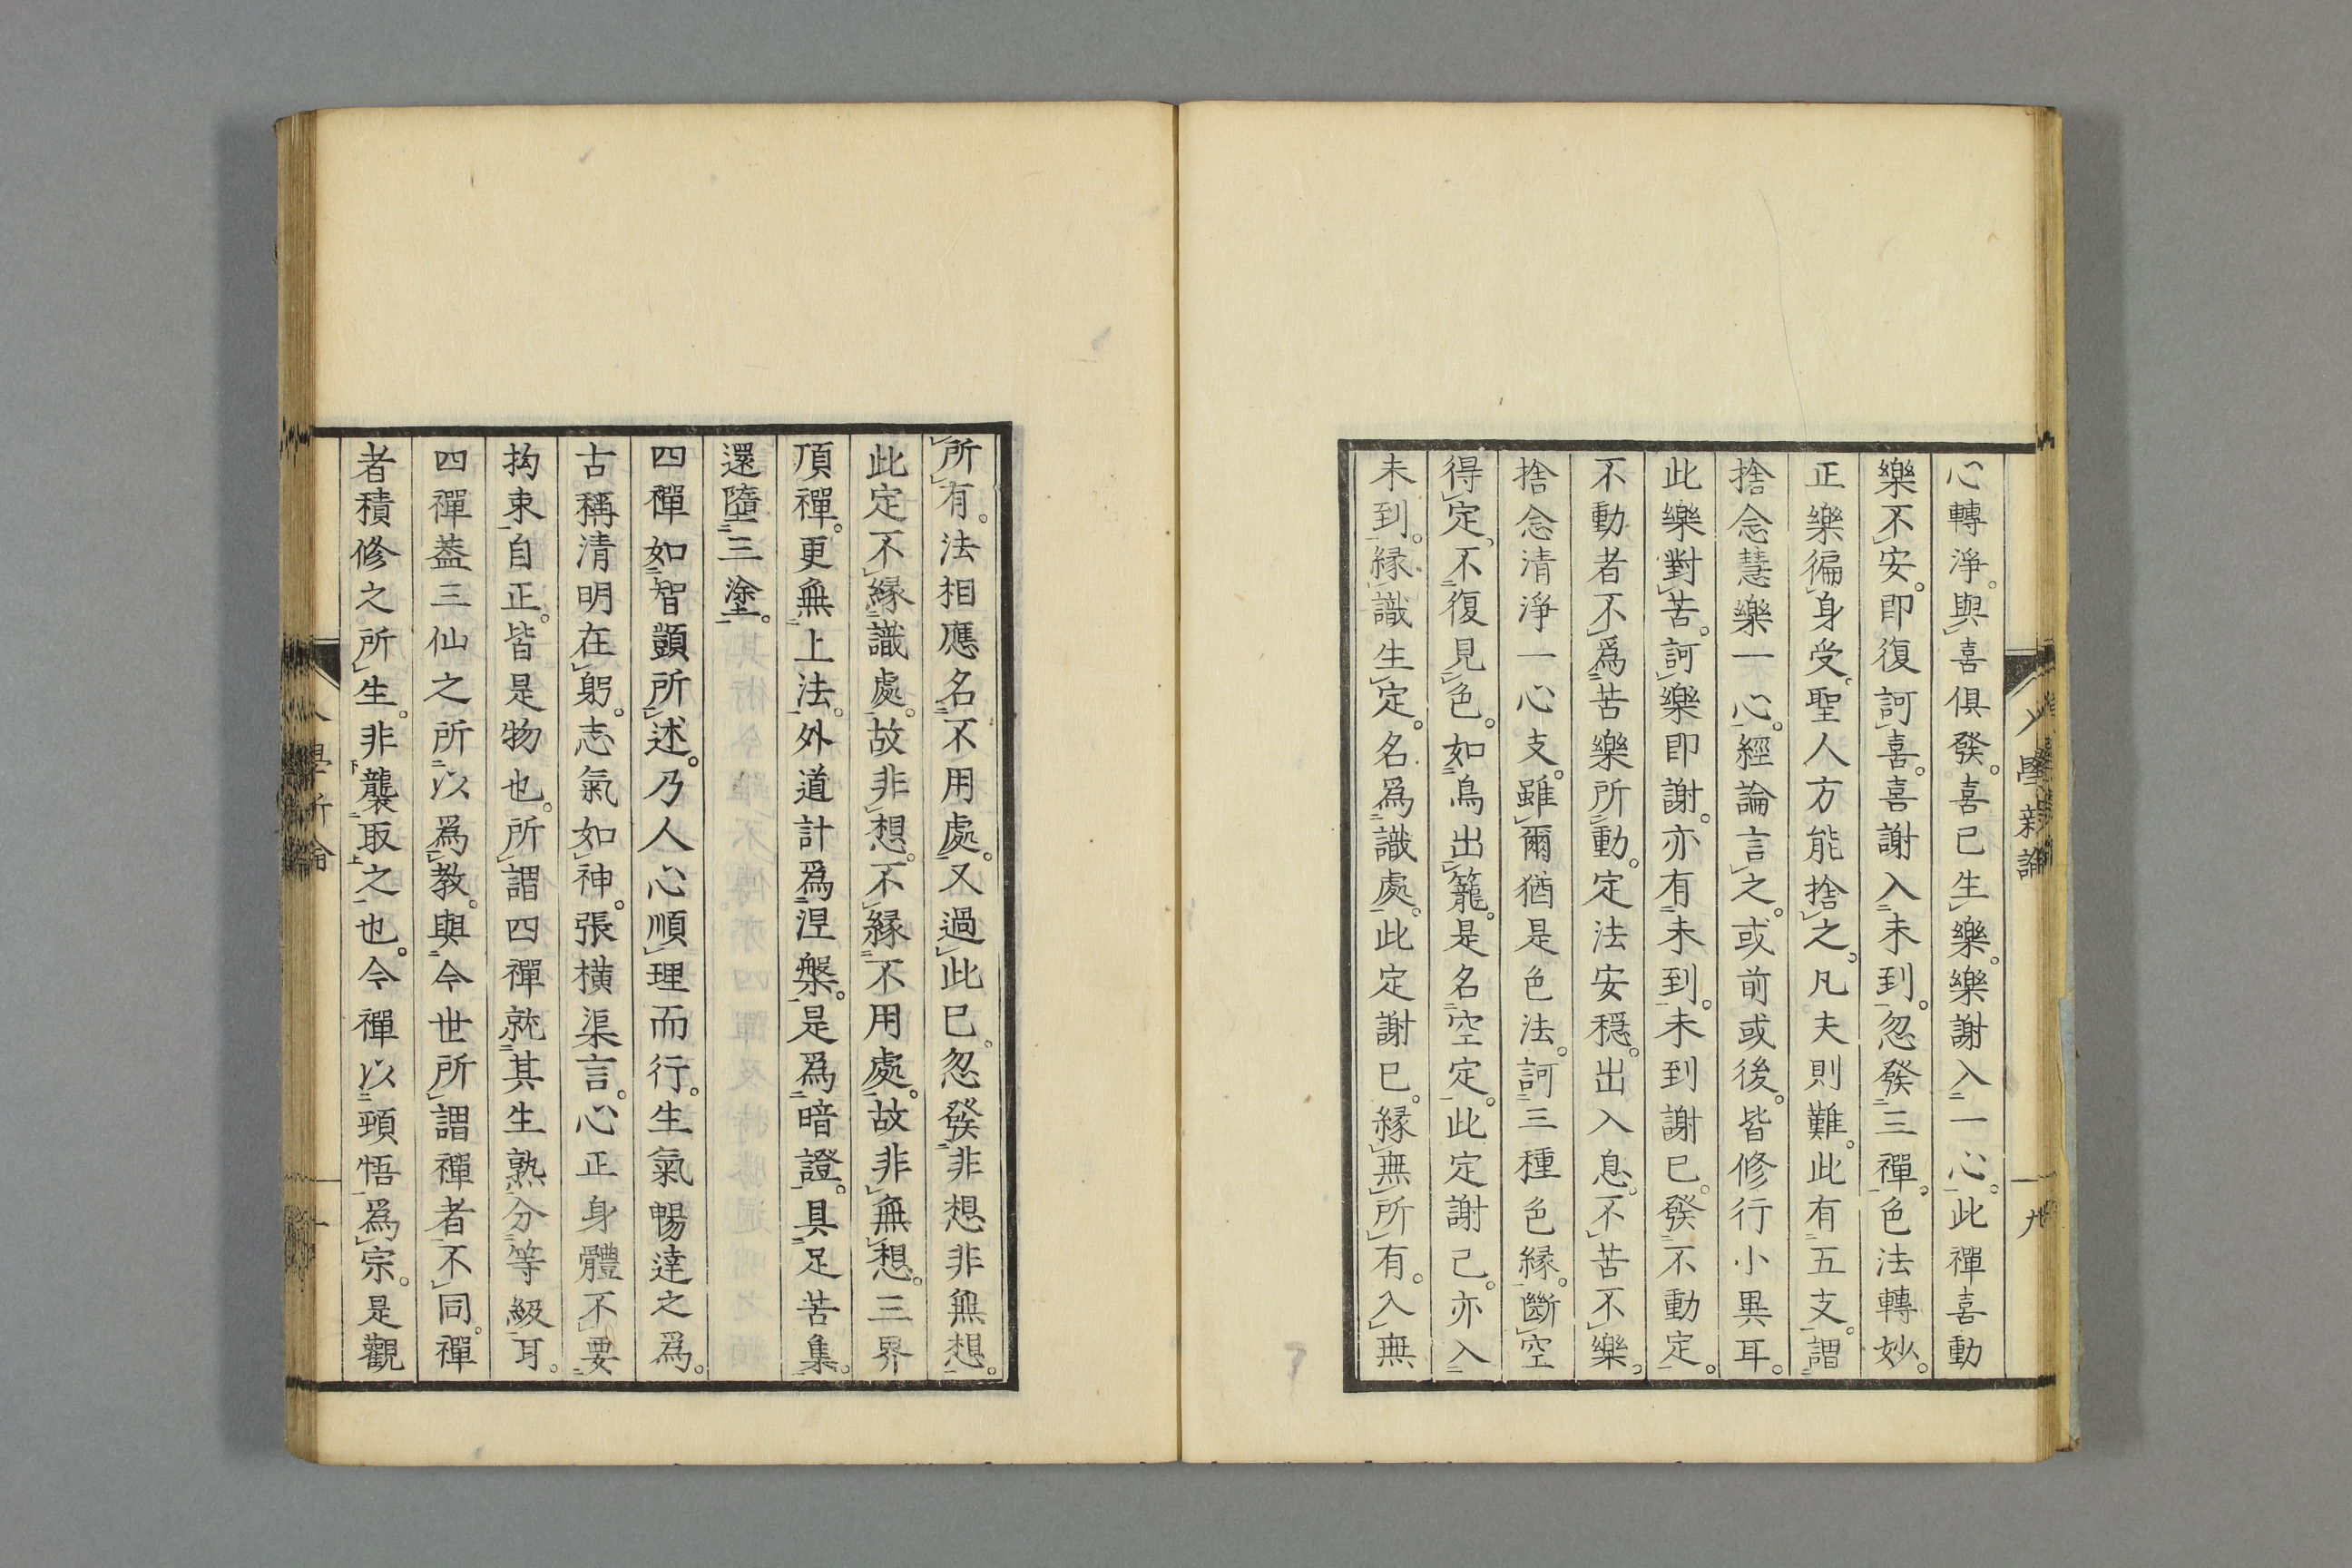 心轉淨。與喜俱發。喜已生樂。樂謝入一心。此禪喜動
樂不安。即復訶喜。喜謝入未到。忽發三禪。色法轉妙。
正樂徧身受。聖人方能捨之。凡夫則難。此有五支。謂
捨念慧樂一心。經論言之。或前或後。皆修行小異耳。
此樂對苦。訶樂即謝。亦有未到。未到謝已。發不動定。
不動者不爲苦樂所動。定法安穩。出入息。不苦不樂。
捨念清淨一心支。雖爾猶是色法。訶三種色緣。斷空
得定。不復見色。如鳥出籠。是名空定。此定謝已。亦入
未到。緣識生定。名爲識處。此定謝已。緣無所有。入無
所有。法相應名不用處。又過此已。忽發非想非無想。
此定不緣識處。故非想。不緣不用處。故非無想。三界
頂禪。更無上法。外道計爲涅槃。是爲暗證。具足苦集。
還墮三塗。
四禪如智顗所述。乃人心順理而行。生氣暢達之爲。
古稱清明在躬。志氣如神。張橫渠言。心正身體不要
拘束自正。皆是物也。所謂四禪就其生熟分等級耳。
四禪葢三仙之所以爲教。與今世所謂禪者不同。禪
者積修之所生。非襲取之也。今禪以頓悟爲宗。是觀